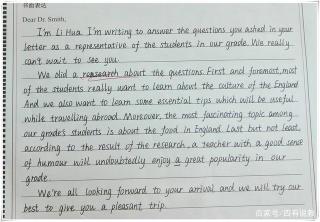 书面表达
Dear Dr. Smith,
I'm Li Hua. I'm writing to answer the questions you asked in your
letter as a representative of the students in our grade. We really
can't wait to see you.
We did a research about the questions. First and foremost, most
of the students really want to learn about the culture of the England.
And we also want to learn some essential tips which will be useful
while travelling abroad. Moreover, the most fascinating topic among
our grade's students is about the food in England. Last but not least,
according to the result of the research, a teacher with a good sense
of humour will undoubtedly enjoy a great popularity in our
grade.
We're all looking forward to your arrival and we will try our
best to give you a pleasant trip.